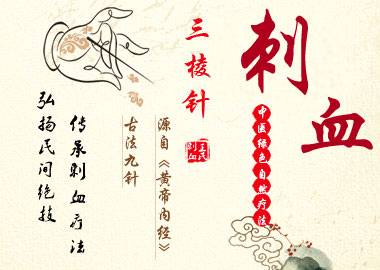 刺血
中医绿色自然疗法
三棱针
王氏
刺血
源自《黄帝内经》
古法九针
传承刺血疗法
弘扬民间绝技